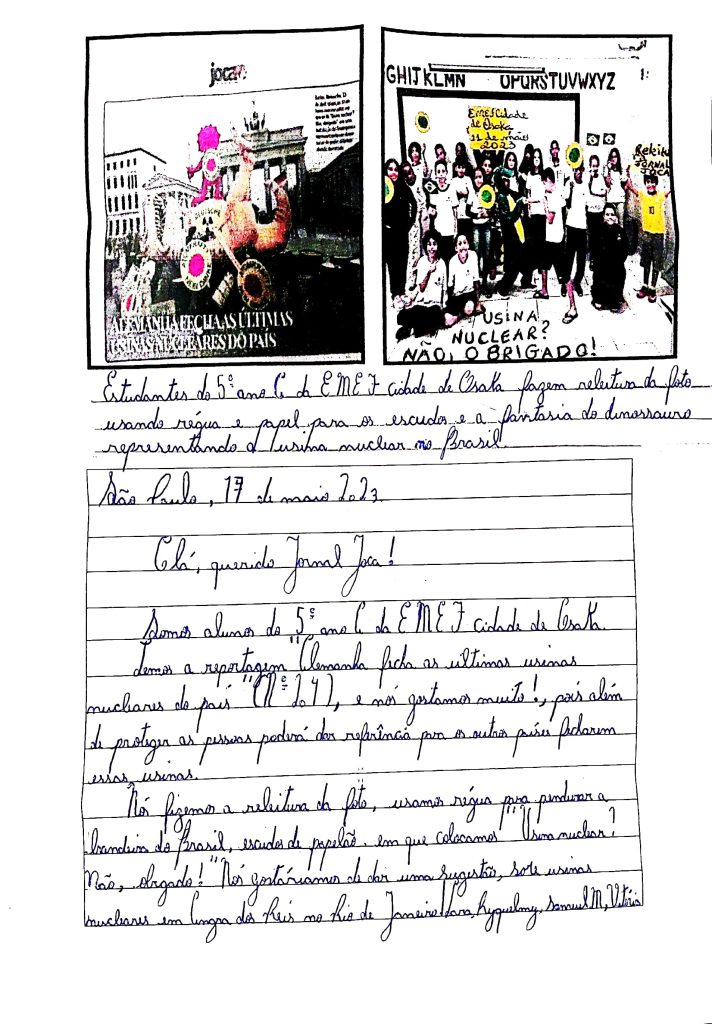 joca
ALEMANHA FECHA AS ÚLTIMAS
USINAS NUCLEARES DO PAÍS
GHIJKLMN OPQRSTUVWXYZ
EMEF Cidade
de Osaka
11 de maio
2023
JORNAL
JOCA
USINA
NUCLEAR?
NÃO, OBRIGADO!
Estudantes do 5º ano C da EMEF cidade de Osaka fazem releitura da foto
usando régua e papel para os escudos e a fantasia do dinossauro
representando a usina nuclear no Brasil.
São Paulo, 17 de maio 2023.
Olá, querido Jornal Joca!
Somos alunos do 5º ano C da EMEF cidade de Osaka.
Lemos a reportagem "Alemanha fecha as últimas usinas
nucleares do país" (Nº 204), e nós gostamos muito!, pois além
de proteger as pessoas poderá dar referência pra os outros países fecharem
essas usinas.
Nós fizemos a releitura da foto, usamos régua pra pendurar a
bandeira do Brasil, escudos de papelão em que colocamos "Usina nuclear?
Não, obrigado!" Nós gostáriamos de dar uma sugestão, sobre usinas
nucleares em Angra dos Reis no Rio de Janeiro! Iara, Ryquelmy, Samuel M, Vitória